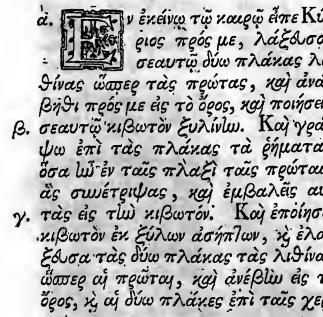 α. Ἐν ἐκείνῳ τῷ καιρῷ εἶπε Κύ
ριος πρός με, λάξευσο
σεαυτῷ δύο πλάκας λι
θίνας ὥσπερ τὰς πρώτας, καὶ ἀνά
βηθι πρός με εἰς τὸ ὄρος, καὶ ποιήσει
β. σεαυτῷ κιβωτὸν ξυλίνην. Καὶ γρά
ψω ἐπὶ τὰς πλάκας τὰ ῥήματα
ὅσα ἦν ἐν ταῖς πλαξὶ ταῖς πρώται
ἃς συνέτριψας, καὶ ἐμβαλεῖς αυ
γ. τὰς εἰς τὴν κιβωτόν. Καὶ ἐποίησ
κιβωτὸν ἐκ ξύλων ἀσήπτων, καὶ ἐλα
ξευσα τὰς δύο πλάκας τὰς λιθίνα
ὥσπερ αἱ πρῶται, καὶ ἀνέβην εἰς τ
ὄρος, καὶ αἱ δύο πλάκες ἐπὶ ταῖς χερ